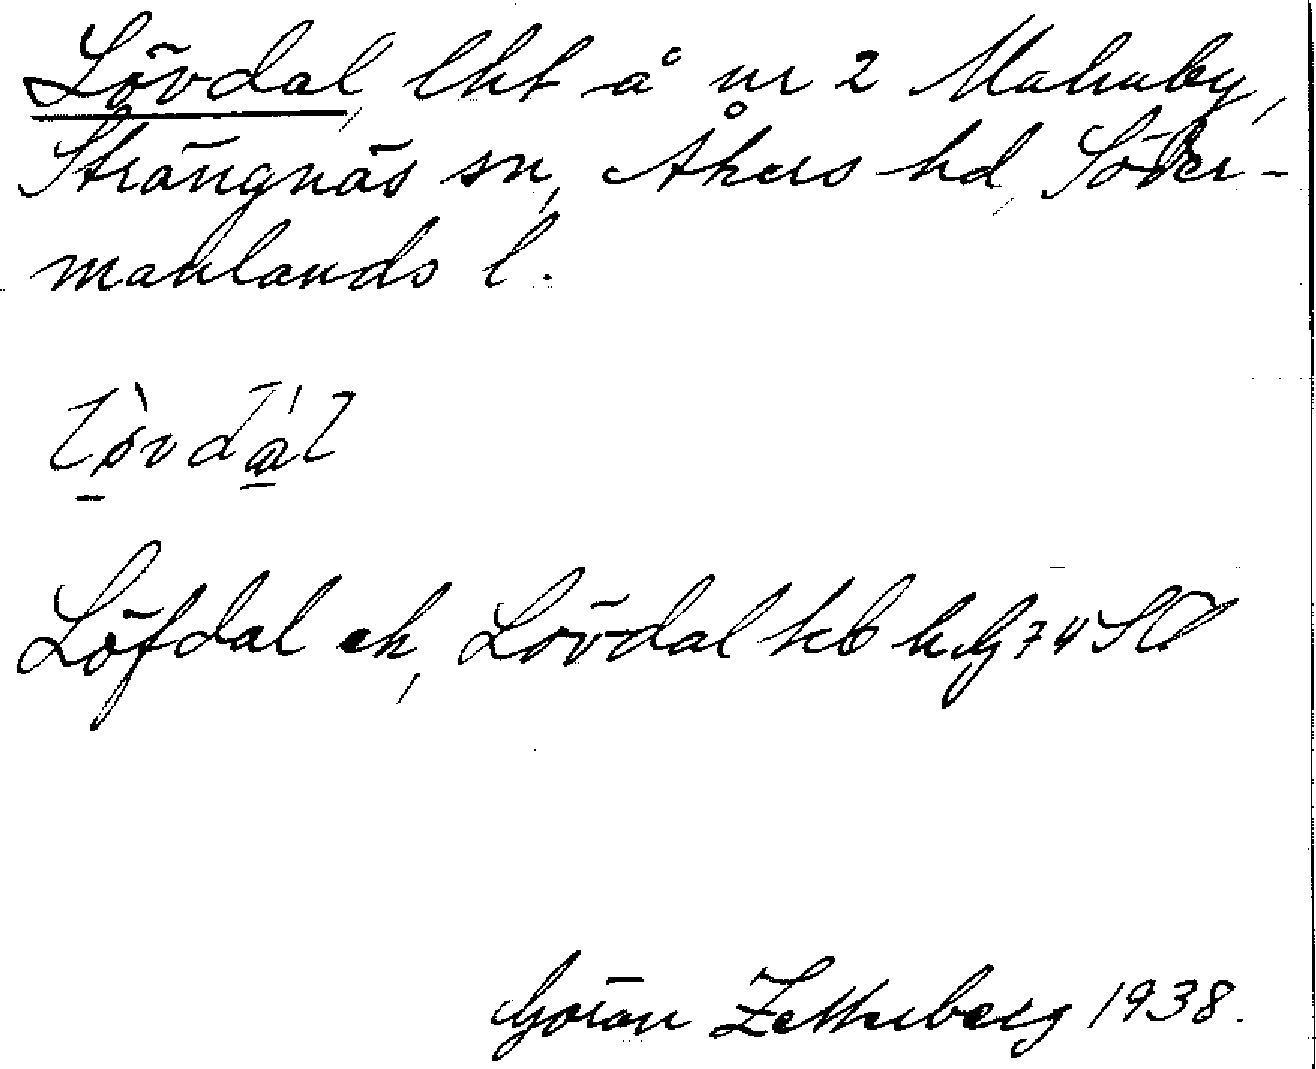 Lövdal, lht å nr 2 Malmby,
Strängnäs sn, Åkers hd, Söder-
manlands l.
lövdal
Löfdal ek, Lövdal kb
Göran Zetterberg 1938.